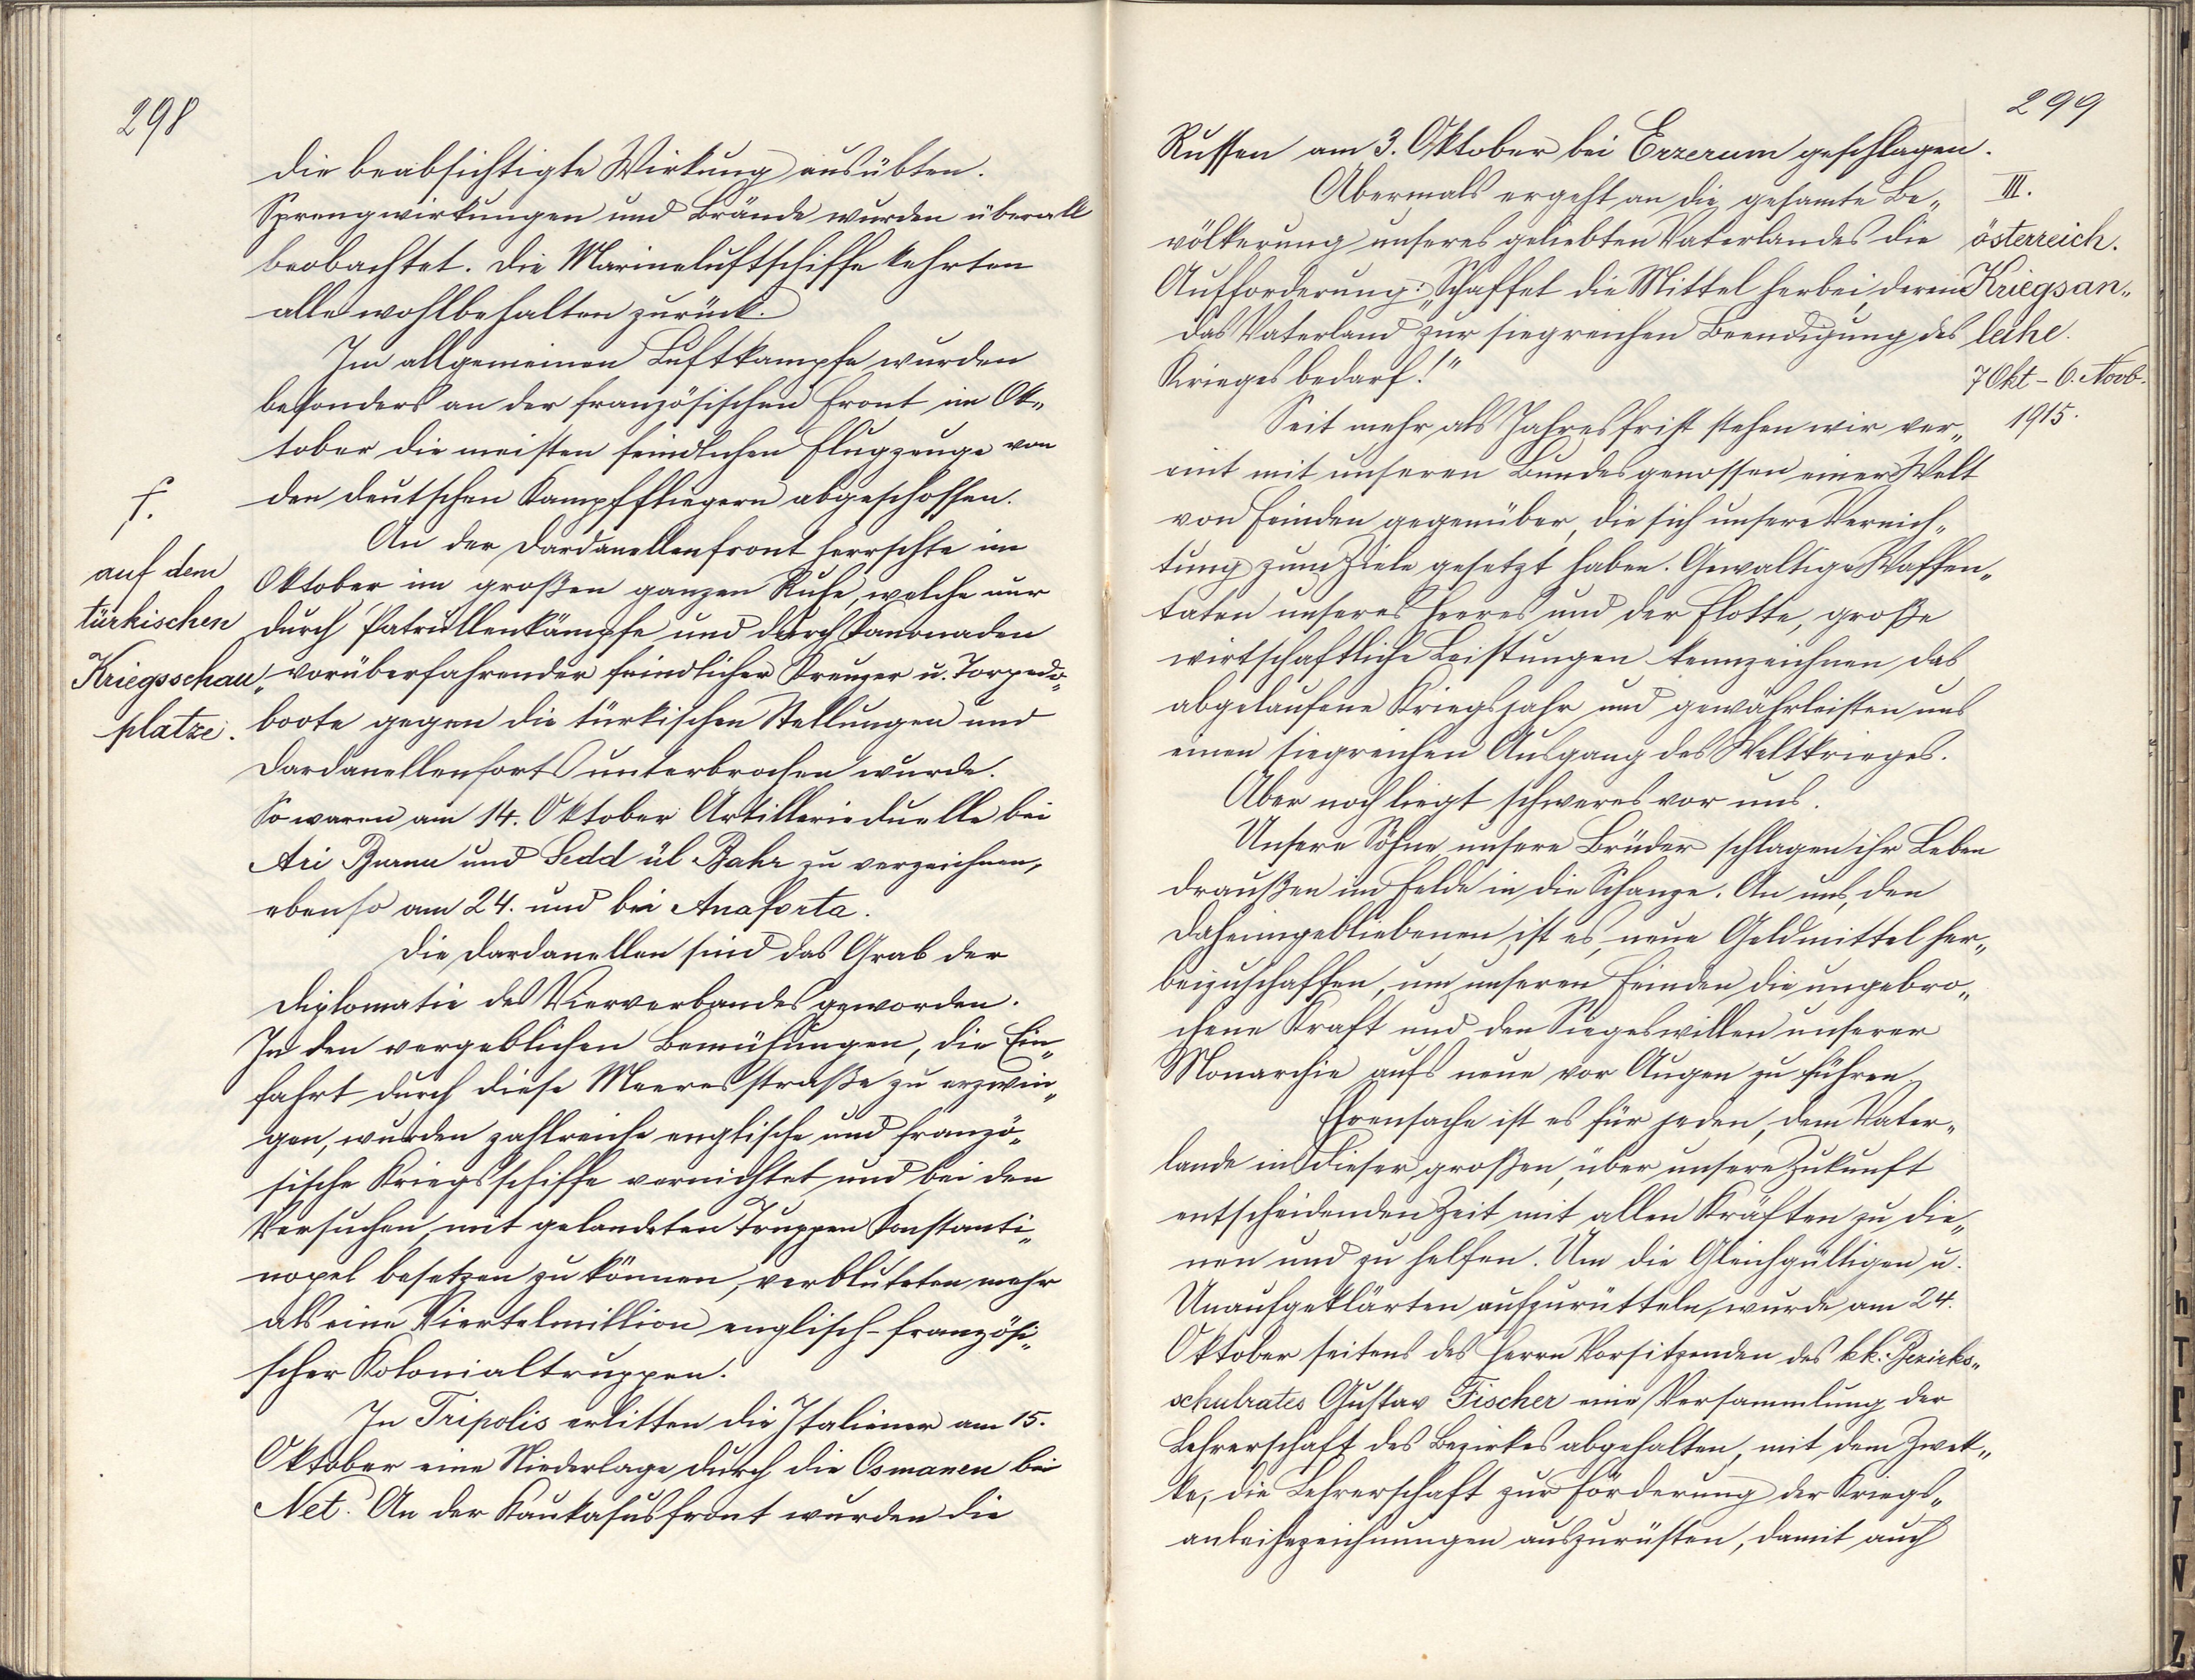 298
die beabsichtigte Wirkung ausübten.
Sprengwirkungen und Brände wurden überall
beobachtet. Die Marineluftschiffe kehrten
alle wohlbehalten zurück.
Im allgemeinen Luftkampfe wurden
besonders an der französischen Front im Ok„
tober die meisten feindlichen Flugzeuge von
den deutschen Kampffliegern abgeschossen.
f.
auf dem
türkischen
Kriegsschau„
platze.
An der Dardanellenfront herrschte im
Oktober im großen ganzen Ruhe, welche nur
durch Patrullenkämpfe und durch Kanonaden
vorüberfahrender feindlicher Kreuzer u. Torpedo„
boote gegen die türkischen Stellungen und
Dardanellenforts unterbrochen wurde.
So waren am 14. Oktober Artillerieduelle bei
Ari Burnu und Sedd ül Bahr zu verzeichnen,
ebenso am 24. und bei Anaforta.
Die Dardanellen sind das Grab der
Diplomatie des Vierverbandes geworden.
In den vergeblichen Bemühungen, die Ein„
fahrt durch diese Meeresstraße zu erzwin„
gen, wurden zahlreiche englische und franzö„
sische Kriegsschiffe vernichtet und bei den
Versuchen, mit gelandeten Truppen Konstanti„
nopel besetzen zu können, verbluteten mehr
als eine Viertelmillion englisch-französi„
scher Kolonialtruppen.
In Tripolis erlitten die Italiener am 15.
Oktober eine Niederlage durch die Osmanen bei
Net. An der Kaukasusfront wurden die
299
Russen am 3. Oktober bei Erzerum geschlagen.
III.
österreich.
Kriegsan„
leihe.
7 Okt - 6. Novb.
1915.
Abermals ergeht an die gesamte Be„
völkerung unseres geliebten Vaterlandes die
Aufforderung: „Schaffet die Mittel herbei, deren
das Vaterland zur siegreichen Beendigung des
Krieges bedarf!"
Seit mehr als Jahresfrist stehen wir ver„
eint mit unseren Bundesgenossen einer Welt
von Feinden gegenüber, die sich unsere Vernich„
tung zum Ziele gesetzt haben. Gewaltige Waffen„
taten unseres Heeres und der Flotte, große
wirtschaftliche Leistungen kennzeichnen das
abgelaufene Kriegsjahr und gewährleisten uns
einen siegreichen Ausgang des Weltkrieges.
Aber noch liegt schweres vor uns.
Unsere Söhne, unsere Brüder schlagen ihr Leben
draußen im Felde in die Schanze. An uns, den
Daheimgebliebenen ist es, neue Geldmittel her„
beizuschaffen, um unseren Feinden die ungebro„
chene Kraft und den Siegeswillen unserer
Monarchie aufs neue vor Augen zu führen.
Ehrensache ist es für jeden, dem Vater„
lande in dieser großen, über unsere Zukunft
entscheidenden Zeit mit allen Kräften zu die„
nen und zu helfen. Um die Gleichgültigen u.
Unaufgeklärten aufzurütteln, wurde am 24.
Oktober seitens des Herrn Vorsitzenden des kk. Bezirks„
schulrates Gustav Fischer eine Versammlung der
Lehrerschaft des Bezirkes abgehalten, mit dem Zwek„
ke, die Lehrerschaft zur Förderung der Kriegs„
anleihezeichnungen auszurüsten, damit auch